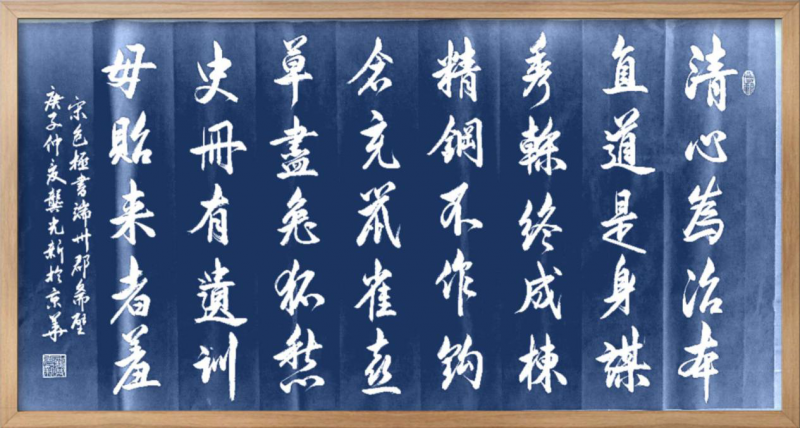 清心為治本
直道是身謀
秀榦終成棟
精鋼不作鈎
倉充鼠雀喜
草盡兔狐愁
史冊有遺訓
毋貽来者羞
宋包拯書端州郡齋壁
庚子仲夏龔光新於京華